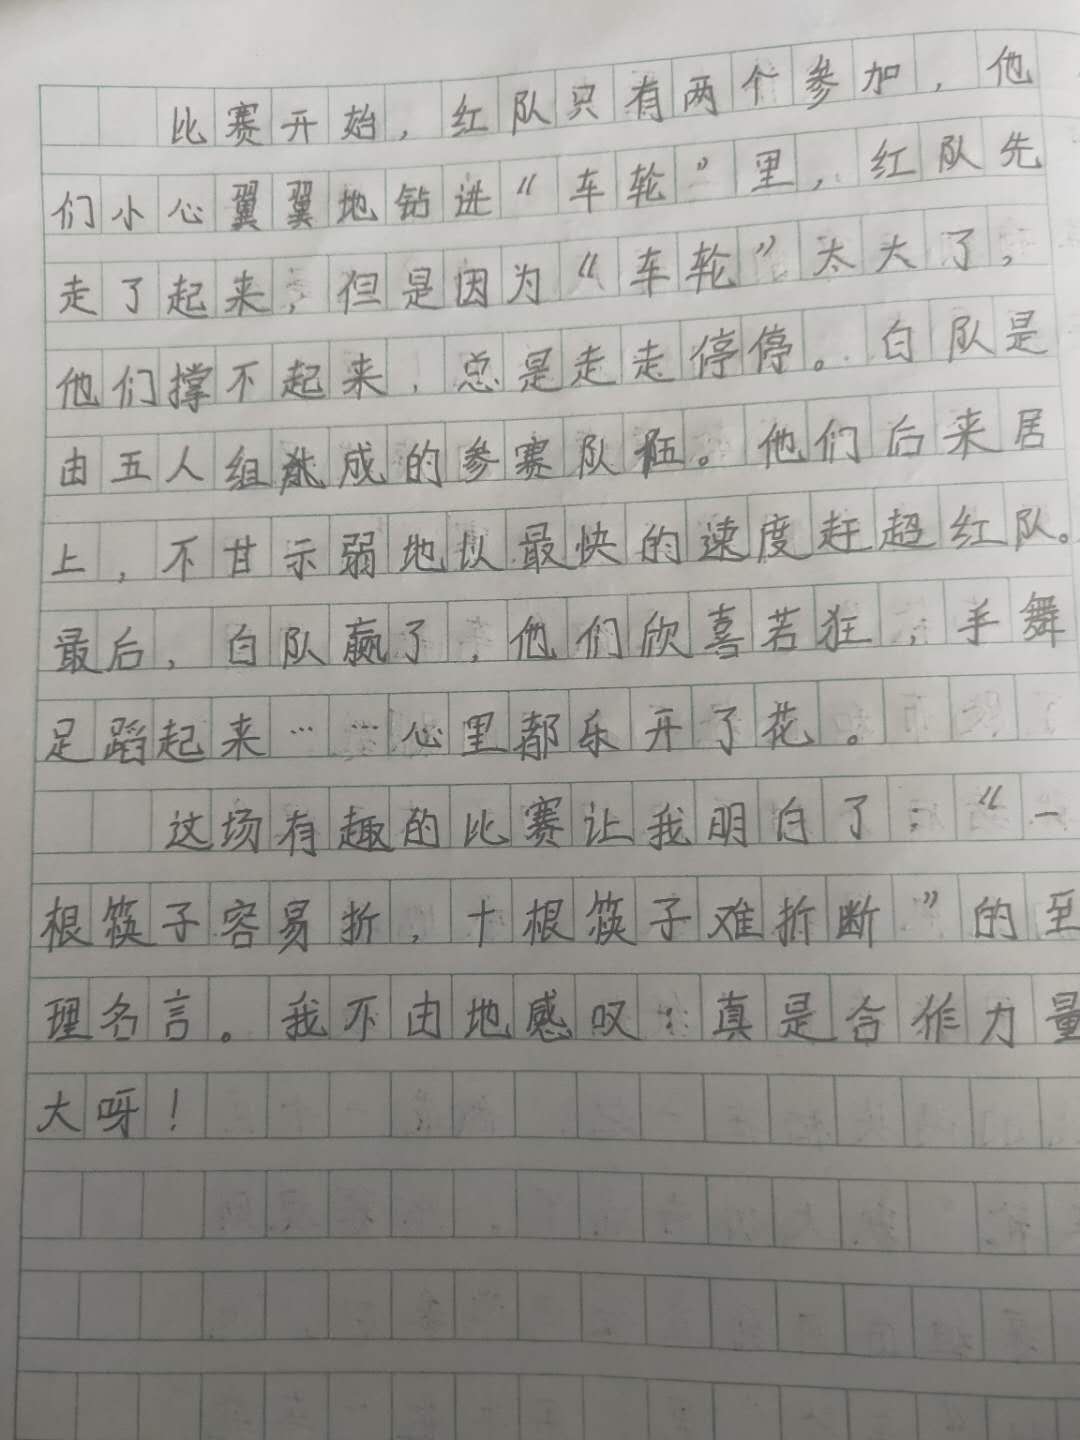 比赛开始，红队只有两个参加，他
们小心翼翼地钻进“车轮”里，红队先
走了起来，但是因为“车轮”太大了，
他们撑不起来，总是走走停停。白队是
由五人组成的参赛队伍。他们后来居
上，不甘示弱地以最快的速度赶超红队。
最后，白队赢了，他们欣喜若狂，手舞
足蹈起来……心里都乐开了花。
这场有趣的比赛让我明白了：“一
根筷子容易折，十根筷子难折断”的至
理名言。我不由地感叹：真是合作力量
大呀！